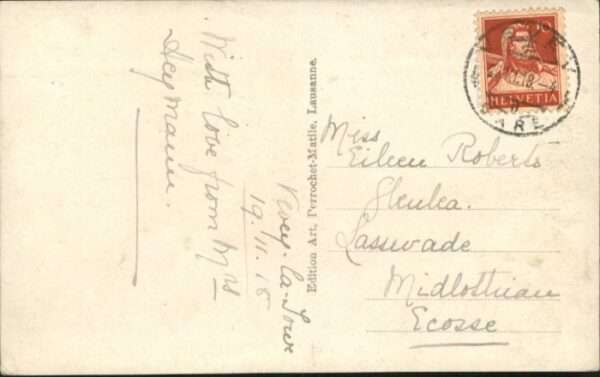 With love from Mrs
Heymann.
Vevey-la-Tour
19.11.18
Edition Art, Perrochet-Matile, Lausanne.
10
HELVETIA
Miss
Eileen Roberts
Glenlea.
Lasswade
Midlothian
Ecosse